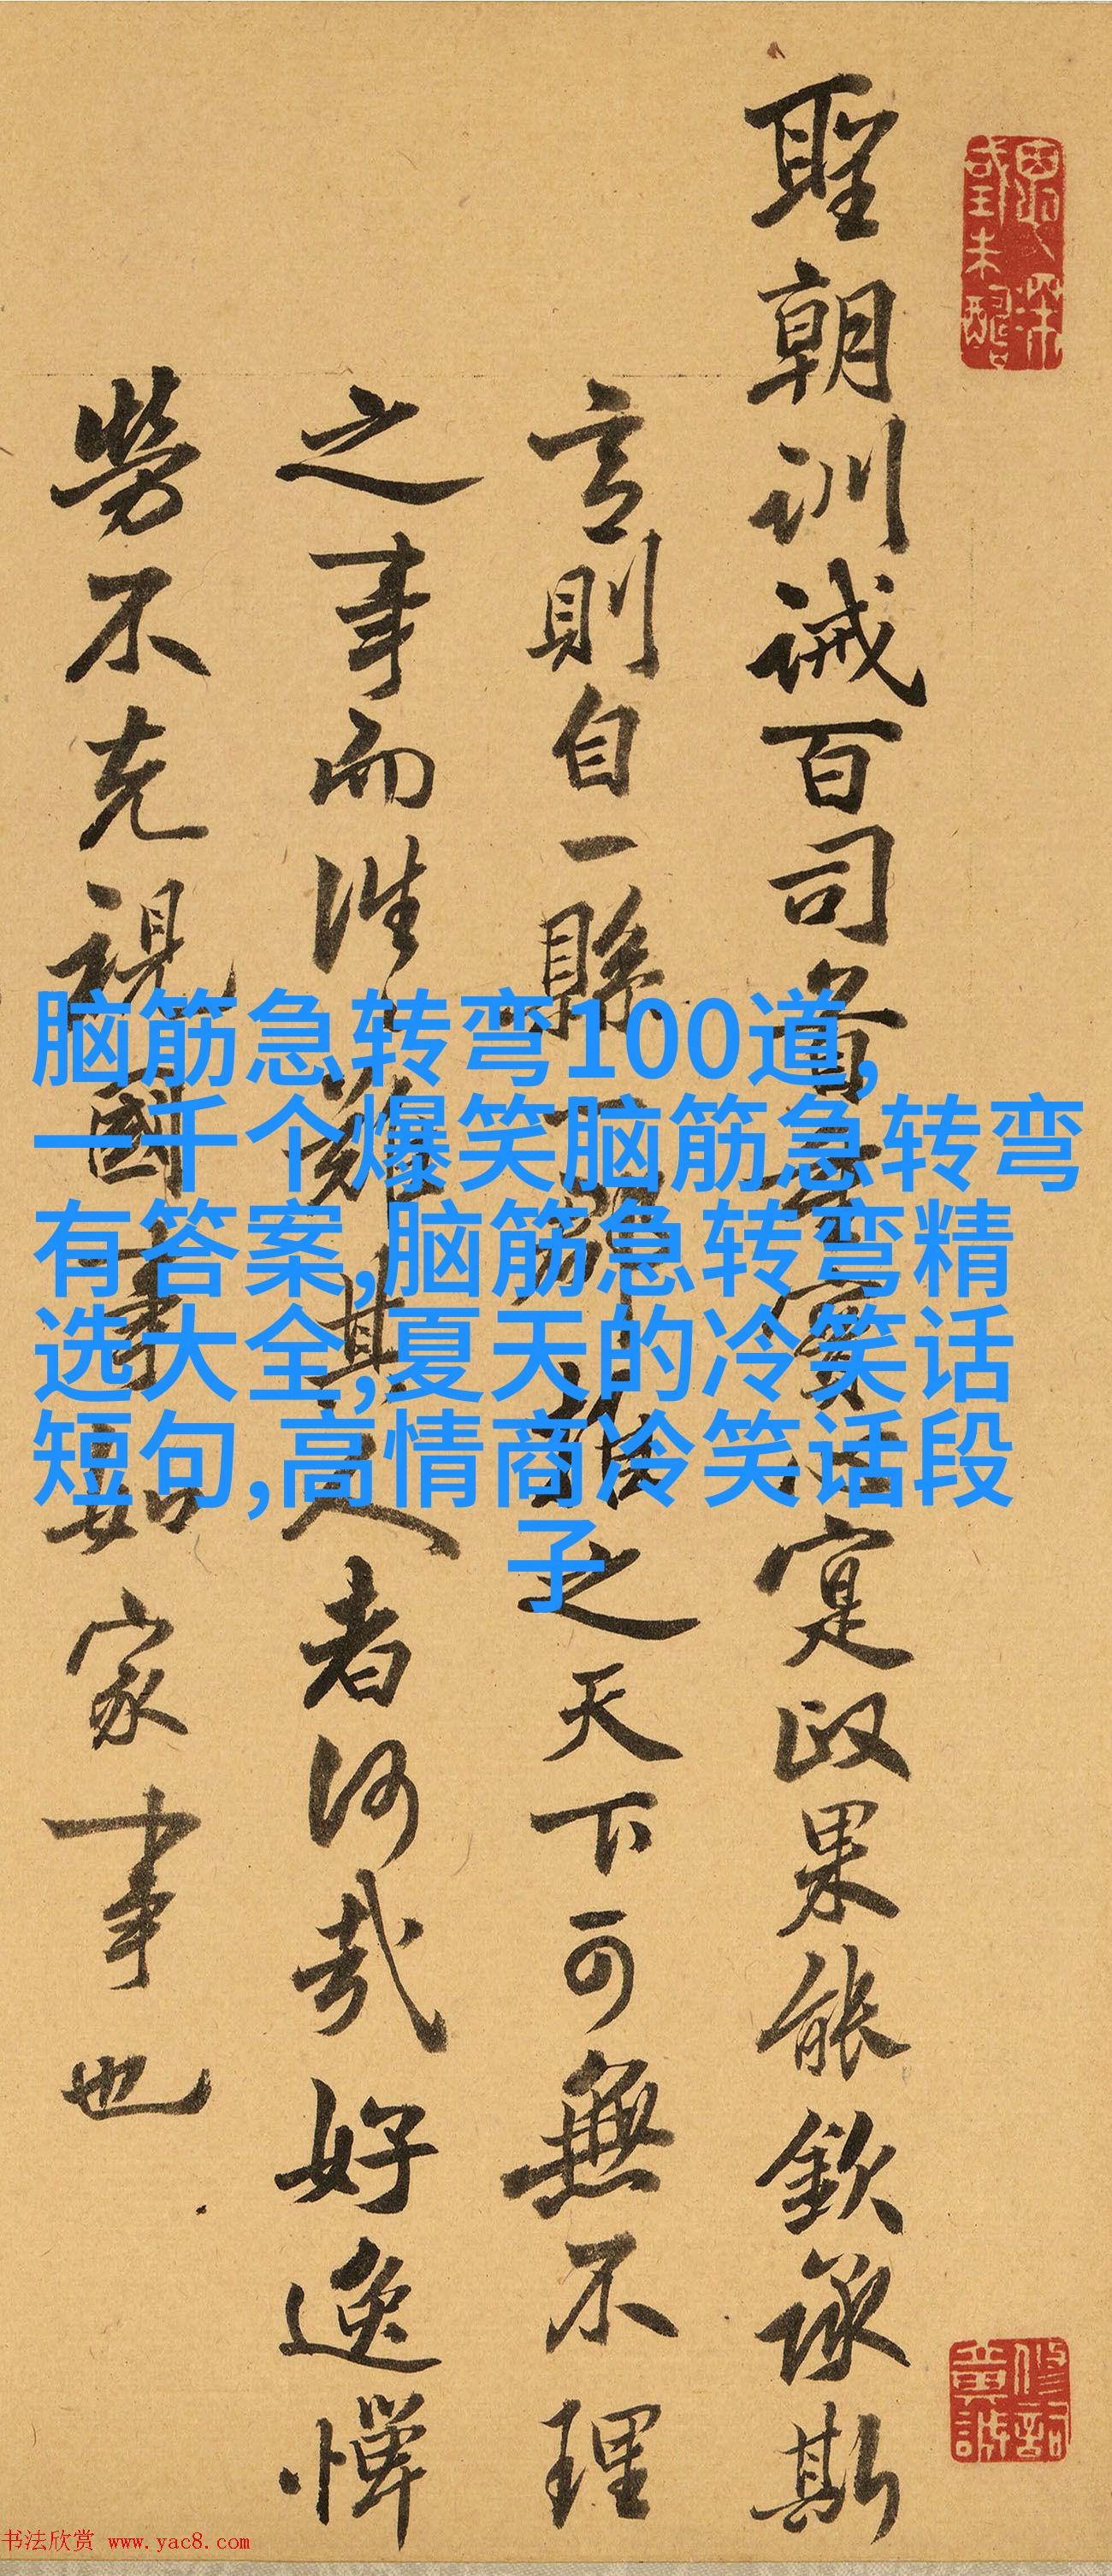 聖朝訓誡百司首
寔政果能欽承斯
言則自一縣
之天下可無不理
之事而
其人者何哉好逸憚
勞不克視國事如家事也
脑筋急转弯100道,
一千个爆笑脑筋急转弯
有答案,脑筋急转弯精
选大全,夏天的冷笑话
短句,高情商冷笑话段
子
书法欣赏 www.yac8.com